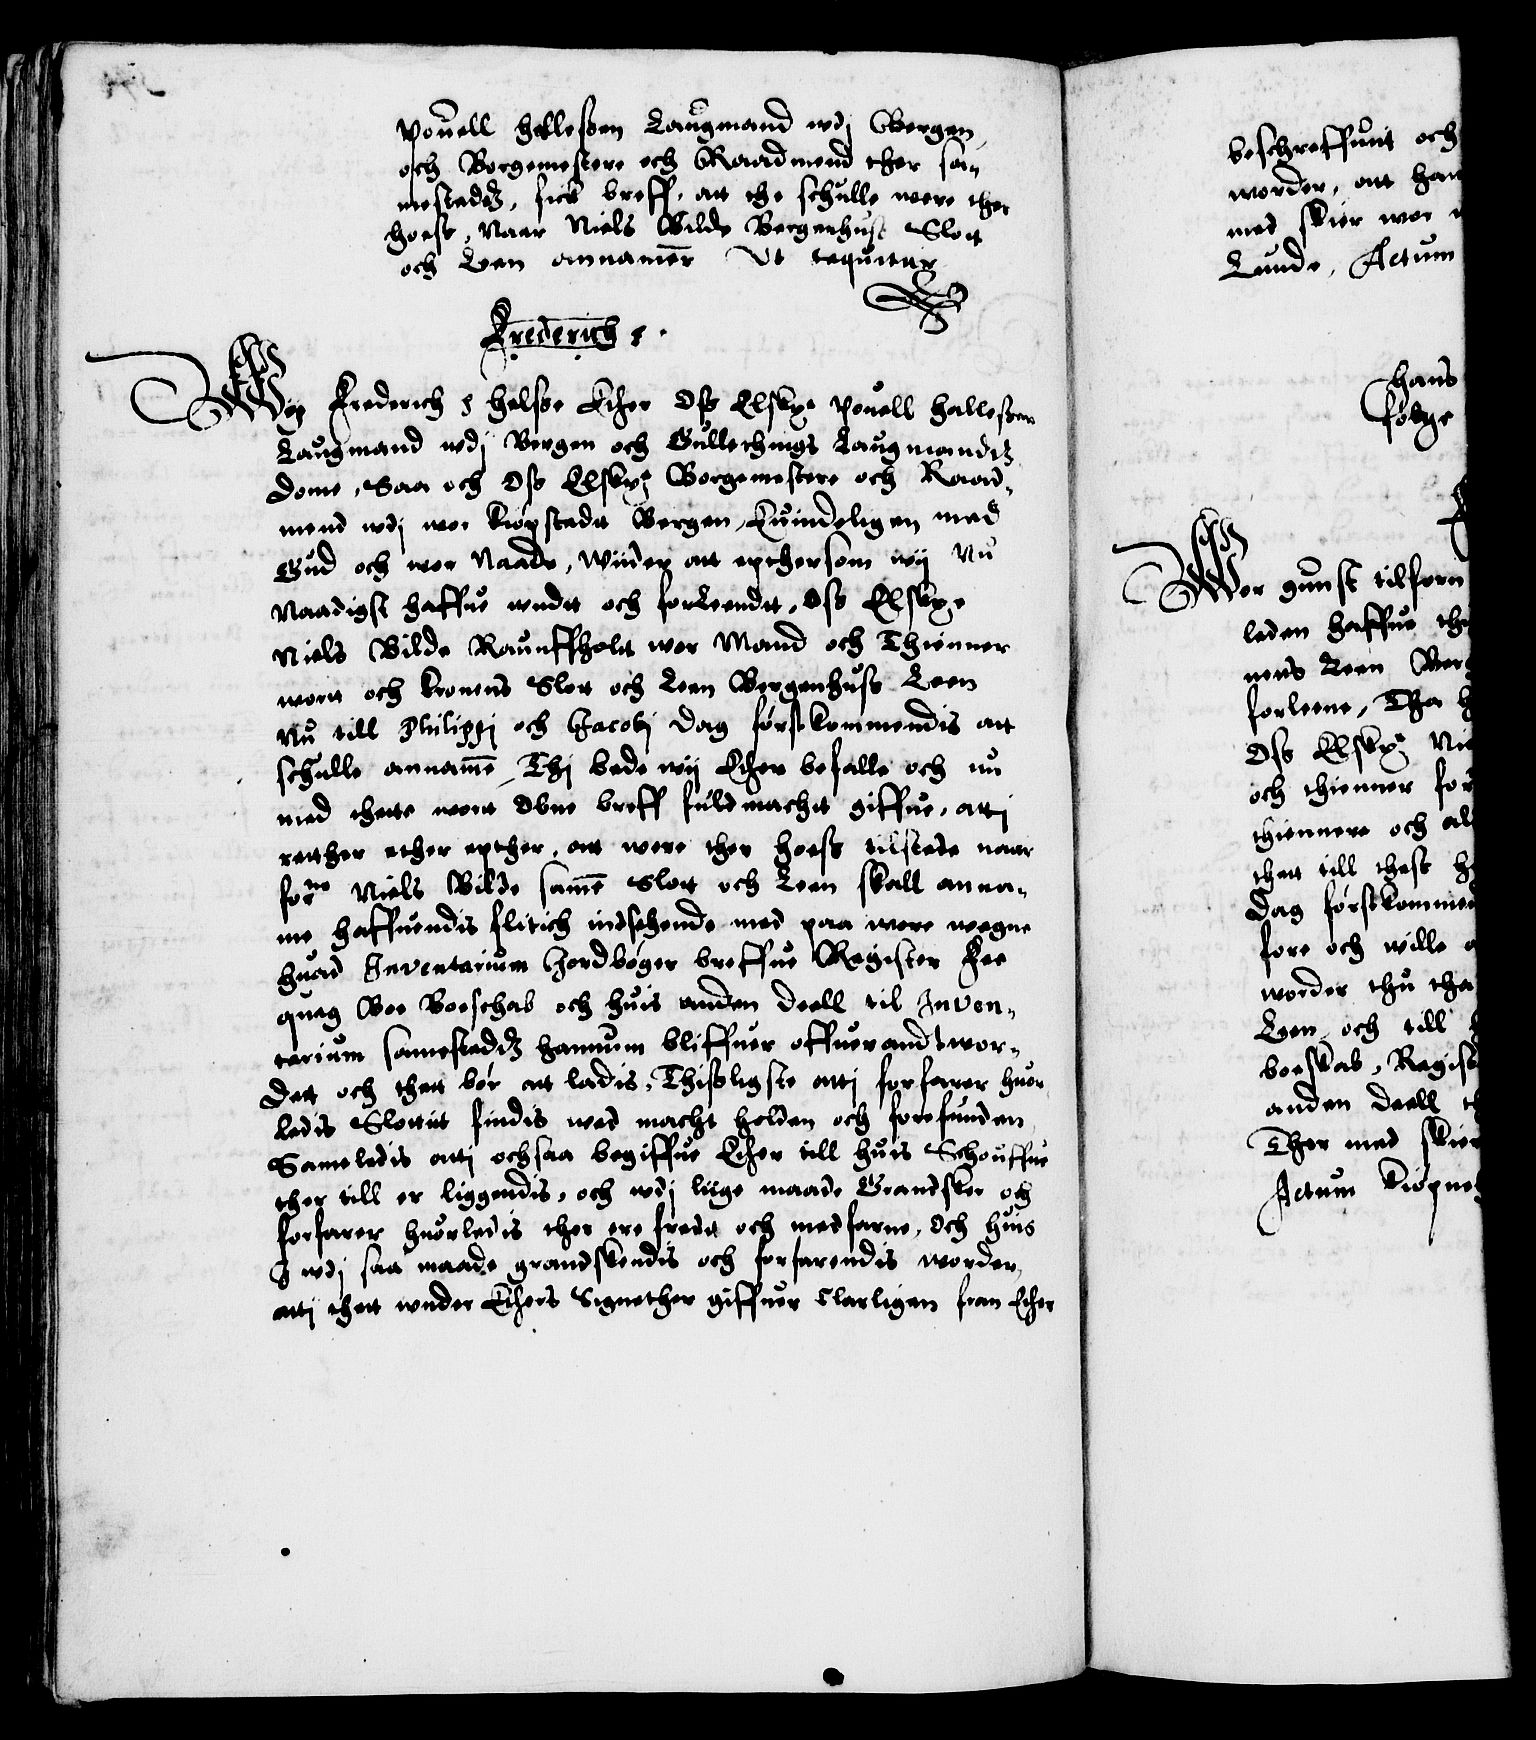 Pouell helleßen Laugmand wdj Bergen
och Borgemestere och Raadmend ther sa-
mestedz, fick breff, att the schulle were ther
hoest, Naar Niels Bilde Bergenhust Slott
och Leen annamer Ut sequitur
Frederich 2.
Wij Frederich 2 helße Ether Oss Elskee Pouell Halleßen
Laugmand wdj Bergen och Gullethings Laugmandtz
Dome, Saa och Oss Elske Borgemestere och Raad-
mend wdj wor kiøpstedt Bergen, Euindeligen med
Gud och wor Naade, Wiider att epthersom wij Nu
Naadigst haffue wndt och forleendt, Oss Elskee
Niels Bilde Raunffholtt wor Mand och Thienner
wortt och kronens Slott och Leen Bergenhuss Leen
Nu till Philippi och Jacobj Dag førstkommendis att
schulle anname, Thj bede wij Ether befalle och nu
med thette wort Obne breff fuldmachtt giffue, attj
retther ether epther, att were ther hoess tilstede naar
forne Niels Bilde same Slott och Leen skall anna-
me haffuendis flitich indsehende med paa wore wegne
huad Inventarium Jordbøger breffue Register Fee
queg Boe Boeschab och huis anden deell til Inven-
tarium samestedz hannum bliffuer offuerandtwor-
dett och thett bør att ladis, Thisligste attj forfarer huor
ledis Slottit findis wed macht holden och forefunden
Sameledis attj ochsaa begiffue Ether till huis Schouffue
ther till er liggendis, och wdj liige maade Grandsker och
forfarer huorledis ther ere fredt och medfarne, Och huis
I wdj saa maade grandskendis och forfarendis worder,
attj thett wnder Ethers Signether giffuer Clarligen fran Ether
beschreffuit och
worder, att han
med skier wor
Lunde, Actum
hans
følge
Wor gunst tilforn
leden haffue thi
nens Leen Berg
forleene, Tha
Oss Elske Nie
och thienner for
thiennere och al
thett till thest
Dag førstkommen
fore och wille
worder thu tha
Leen och till
boeskab, Regist
anden deell
Ther med skier
Actum Kiøpne